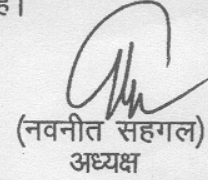 है।
(नवनीत सहगल)
अध्यक्ष